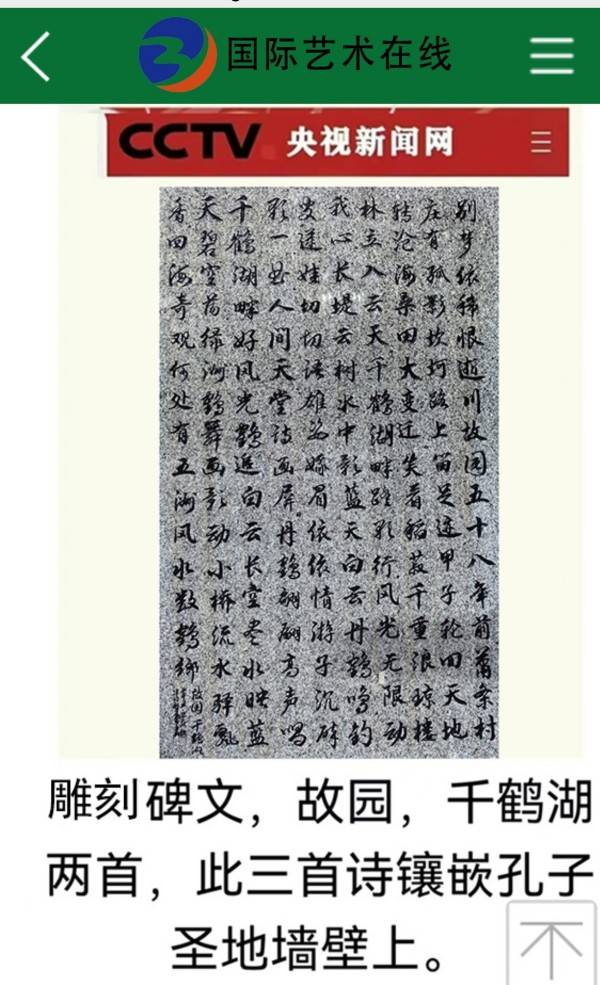 国际艺术在线
CCTV 央视新闻网
别梦依稀恨逝川故园五十八年前舊条村
庄有孤影坎坷路上留足迹甲子轮回天地
转沧海桑田大变迁笑看稻菽千重浪琼楼
林立入云天千鹤湖畔踪影行风光无限动
我心长堤云树水中影蓝天白云丹鹤鸣钓
叟送娃切切语雄姿娥眉依依情游子沉醉
影一曲人间天堂诗画屏丹鹤翩翩高声唱
千鹤湖畔好风光鹤逐白云长空尽水映蓝
天碧空荷绿洲鹤舞画影动小桥流水驿飘
香四海奇观何处有五洲风水数鹤乡
雕刻碑文，故园，千鹤湖
两首，此三首诗镶嵌孔子
圣地墙壁上。